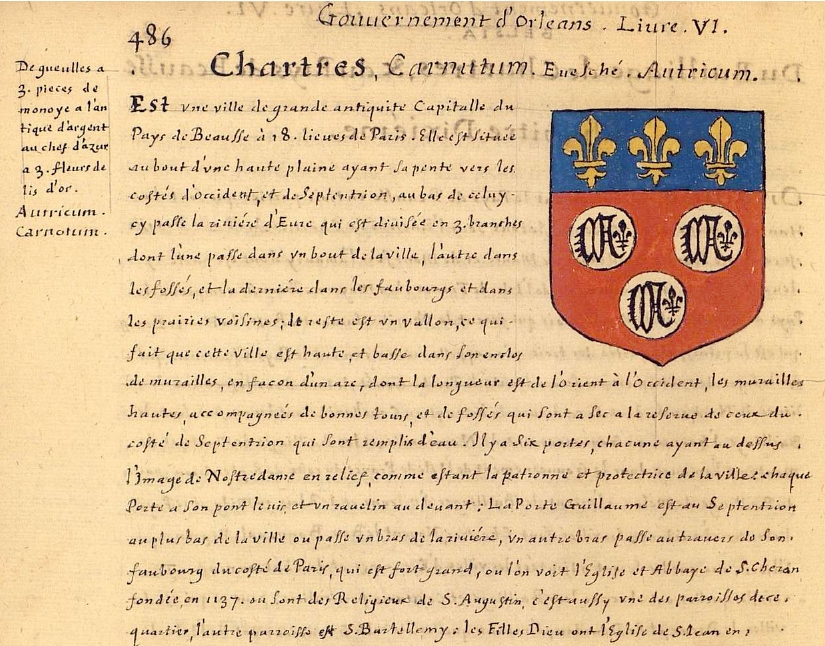 Gouuernement d'Orleans. Liure. VI.
486
Chartres, Carnutum. Euesché. Autricum.
De gueulles a
3. pieces de
monoye a l'an
tique d'argent
au chef d'azur
a 3. fleurs de
lis d'or.
Autricum.
Carnotum.
Est vne ville de grande antiquite Capitalle du
Pays de Beausse à 18. lieues de Paris. Elle est située
au bout d'vne haute plaine ayant sa pente vers les
costés d'Occident, et de Septentrion, au bas de celuy
cy passe la riuiére d'Eure qui est diuisée en 3. branches
dont l'une passe dans vn bout de la ville, l'autre dans
les fossés, et la derniére dans les faubourgs et dans
les prairies voisines; le reste est vn vallon, ce qui
fait que cette ville est haute, et basse dans son enclos
de murailles, en facon d'un arc, dont la longueur est de l'Orient à l'Occident, les murailles
hautes, accompagneés de bonnes tours, et de fossés qui sont a sec a la reserue de ceux du
costé de Septentrion qui sont remplis d'eau. Il y a six portes, chacune ayant au dessus
l'Image de Nostre dame en relief, comme estant la patronne et protectrice de la ville chaque
Porte a son pont leuis, et vn rauelin au deuant; La Porte Guillaume est au Septentrion
au plus bas de la ville ou passe vn bras de la riuiére, vn autre bras passe au trauers de son
faubourg du costé de Paris, qui est fort grand, ou l'on voit l'Eglise et Abbaye de S. Cheran
fondée en 1137. ou sont des Religieux de S. Augustin, c'est aussy vne des parroisses de ce
quartier, l'autre parroisse est S. Bartellemy: les Filles Dieu ont l'Eglise de S. Iean en;